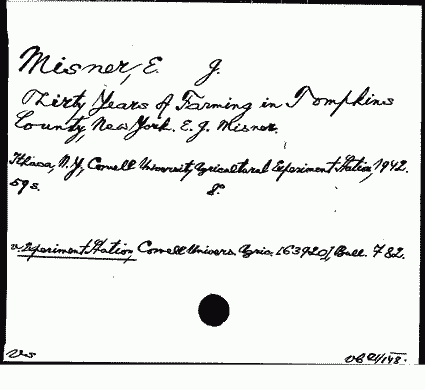 Misner, E. G.
Thirty Years of Farming in Tompkins
County, New York. E. G. Misner.
Ithaca, N.Y., Cornell University Agricultural Experiment Station, 1942.
59 s. 8°.
v. Experiment Station, Cornell Univers. Agric. [63920], Bull. 782.